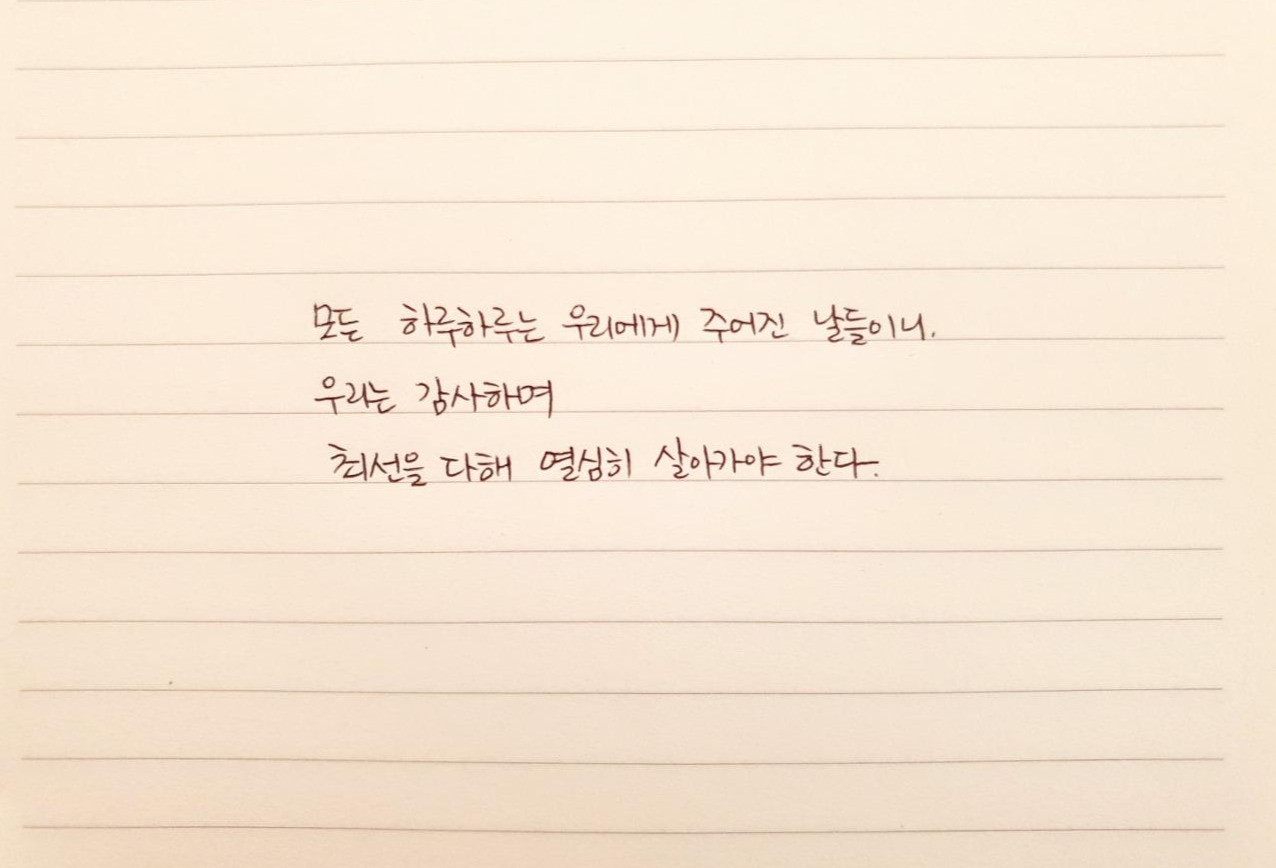 모든 하루하루는 우리에게 주어진 날들이니.
우리는 감사하며
최선을 다해 열심히 살아가야 한다.